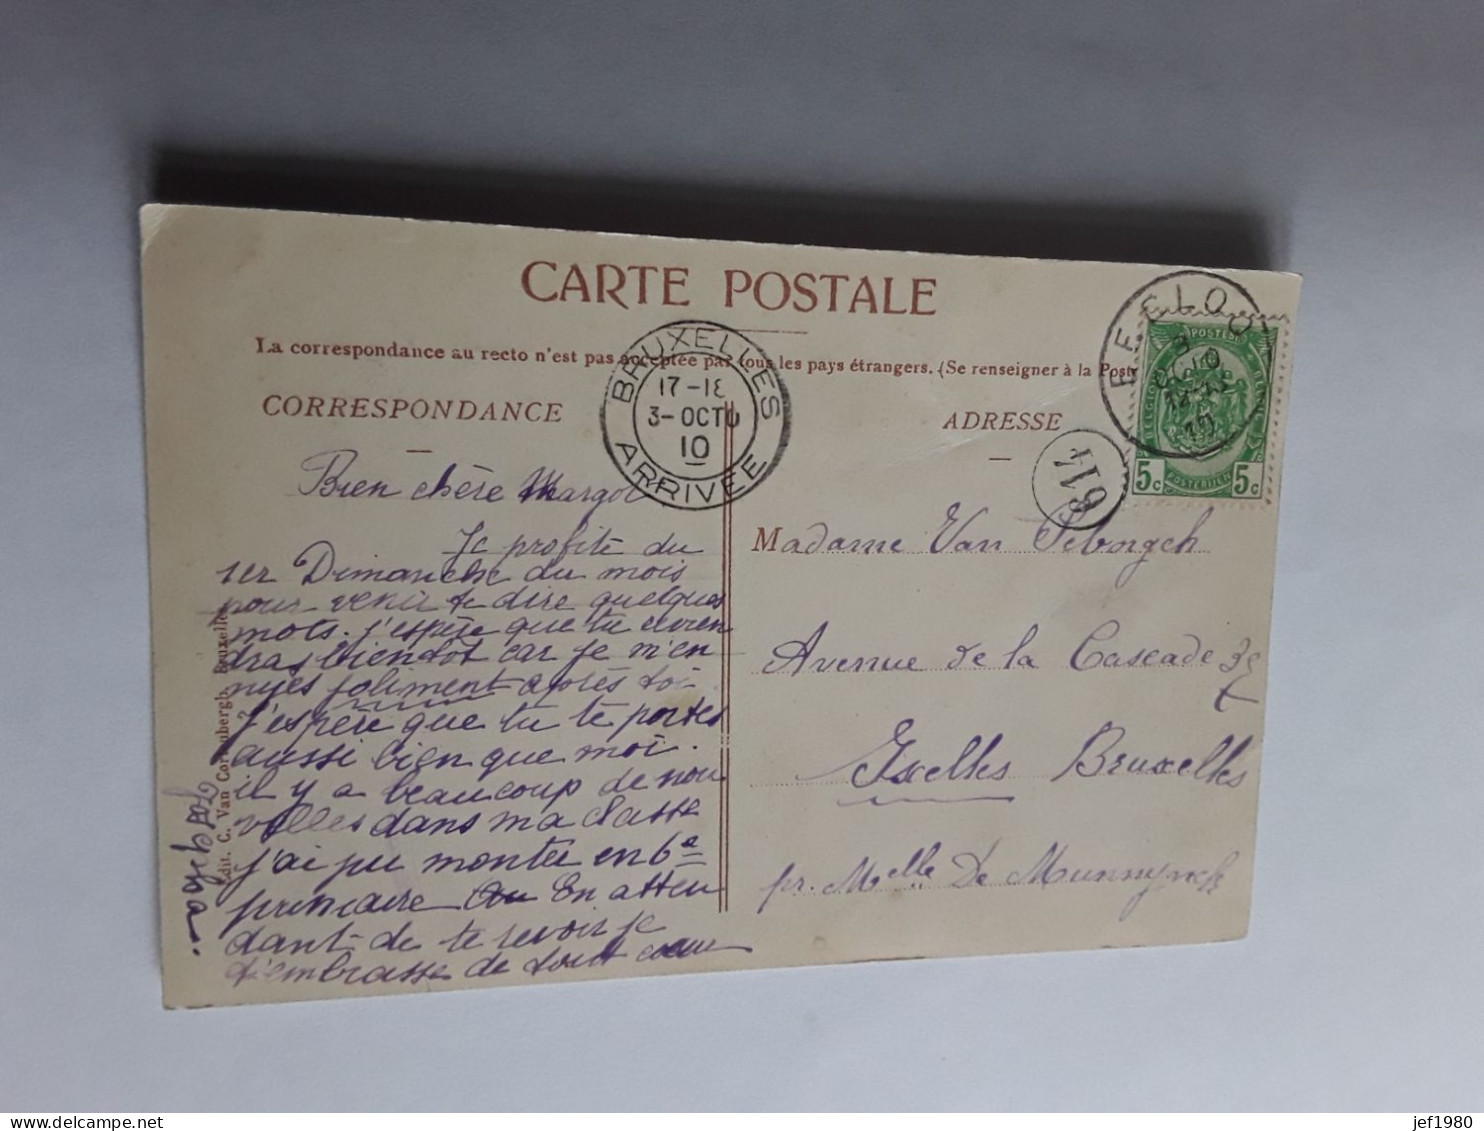 CARTE POSTALE
La correspondance au recto n'est pas acceptée par tous les pays étrangers. (Se renseigner à la Poste
CORRESPONDANCE
ADRESSE
BRUXELLES
17-18
3-OCTO
10
ARRIVÉE
EECLOO
3
OCTO
10
BELGIQUE
POSTES
POSTERIJEN
5c 5c
Bien chère Margot,
Je profite du
1er Dimanche du mois
pour venir te dire quelques
mots. j'espère que tu
dras bientôt car je m'en
nuies joliment après toi
J'espère que tu te portes
aussi bien que moi.
il y a beaucoup de nou
velles dans ma classe
j'ai pu montée en 6e
primaire En atten
dant de te revoir je
t'embrasse de tout coeur
Édit. C. Van Cortenbergh, Bruxelles
Madame Van
Avenue de la Cascade
Ixelles Bruxelles
pr. Melle De Munnynck
jef1980